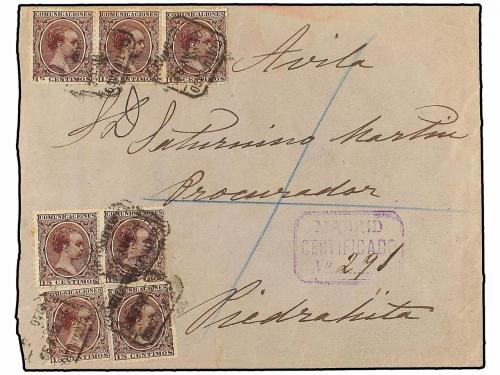 COMUNICACIONES COMUNICACIONES COMUNICACIONES
15 CENTIMOS 15 CENTIMOS 15 CENTIMOS
Avila
Sr D Saturnino Martin
Procurador
COMUNICACIONES COMUNICACIONES
15 CENTIMOS
MADRID
CERTIFICADO
291
15 CENTIMOS 15 CENTIMOS
Piedrahita